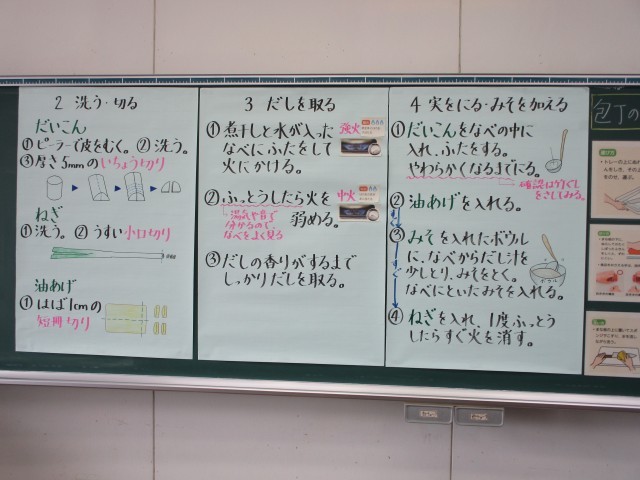 2 洗う・切る
だいこん
①ピーラーで皮をむく。②洗う。
③厚さ5mmのいちょう切り
ねぎ
①洗う。②うすい小口切り
油あげ
①はば1cmの
短冊切り
3 だしを取る
①煮干しと水が入った
なべにふたをして
火にかける。
強火
②ふっとうしたら火を
弱める。
中火
湯気や音で
分かるので、
なべをよく見る
③だしの香りがするまで
しっかりだしを取る。
4 実をにる・みそを加える
①だいこんをなべの中に
入れ、ふたをする。
やわらかくなるまでにる。
確認は竹ぐし
をさしてみる。
②油あげを入れる。
すぐ
③みそを入れたボウル
に、なべからだし汁を
少しとり、みそをとく。
なべにといたみそを入れる。
ボウル
すぐ
④ねぎを入れ、1度ふっとう
したらすぐ火を消す。
包丁の